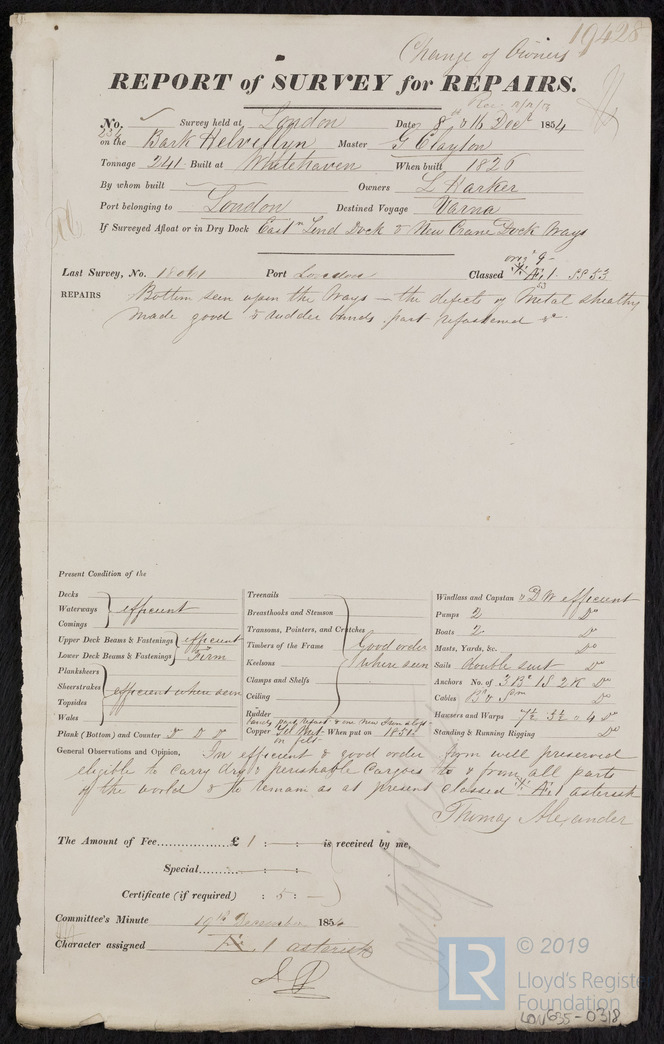 19428
Change of Owners
REPORT of SURVEY for REPAIRS.
No. Survey held at London Date 8th & 16 Decr 1854
on the Bark Helvellyn Master G Clayton
Tonnage 241 Built at Whitehaven When built 1826
By whom built Owners L Harker
Port belonging to London Destined Voyage Varna
If Surveyed Afloat or in Dry Dock East Lend Dock & New Crane Dock Ways
Last Survey, No. 18061 Port London Classed Æ 1 SS 53
REPAIRS Bottom seen upon the Ways — the defects of Metal sheathg
made good & rudder bands part refastened &c
Present Condition of the
Decks
Waterways efficient
Comings
Upper Deck Beams & Fastenings efficient
Lower Deck Beams & Fastenings Firm
Planksheers
Sheerstrakes efficient where seen
Topsides
Wales
Plank (Bottom) and Counter Do Do Do
Treenails
Breasthooks and Stemson
Transoms, Pointers, and Crutches
Timbers of the Frame Good order
Keelsons where seen
Clamps and Shelfs
Ceiling
Rudder
Copper When put on 1851
on felt
Windlass and Capstan & DW efficient
Pumps 2 Do
Boats 2 Do
Masts, Yards, &c. Do
Sails double suit Do
Anchors No. of 3 B 1 S 2 K Do
Cables Do
Hausers and Warps 7½ 5½ & 4 Do
Standing & Running Rigging Do
General Observations and Opinion, In efficient & good order form well preserved
eligible to carry dry & perishable Cargoes to & from all parts
of the world & to remain as at present classed Æ 1 asterisk
Thomas Alexander
The Amount of Fee............... £ 1 : — : — is received by me,
Special............ : — :
Certificate (if required) : 5 : —
Committee's Minute 19th December 1854
Character assigned Æ 1 asterisk
LR
© 2019
Lloyd's Register
Foundation
LON635-0318